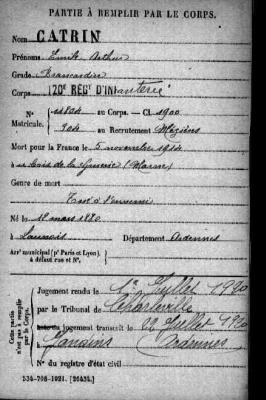 PARTIE À REMPLIR PAR LE CORPS.
Nom CATRIN
Prénoms Emile Arthur
Grade Brancardier
Corps 120E RÉGT D'INFANTERIE
N° 14804 au Corps. — Cl. 1900
Matricule. 304 au Recrutement Mézières
Mort pour la France le novembre 1914
à Bois de la Gruerie (Marne)
Genre de mort
Tué à l'ennemi
Né le 18 mars 1880
à Launois Département Ardennes
Arr' municipal (p' Paris et Lyon),
à défaut rue et N°.
Cette partie
n'est pas à remplir
par le Corps.
Jugement rendu le 1er Juillet 1920
par le Tribunal de Charleville
jugement transcrit le 22 Juillet 1920
à Ardennes
N° du registre d'état civil
534-708-1921. [26434.]